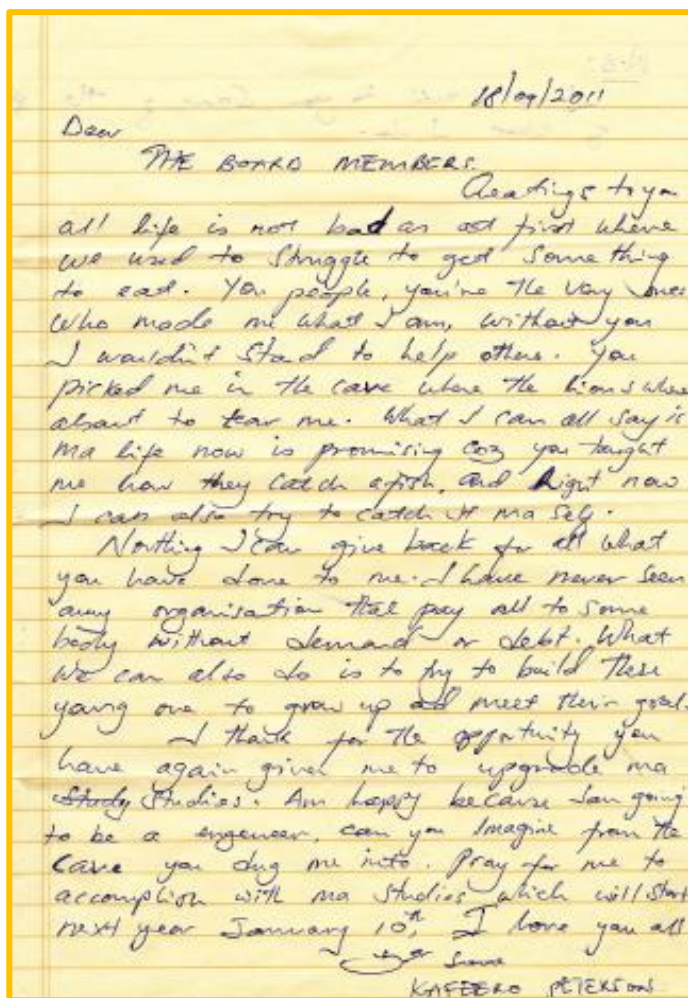 18/09/2011
Dear
THE BOARD MEMBERS.
Greatings to you
all life is not bad as at first where
we used to struggle to get something
to eat. You people, you're the very ones
who made me what I am, without you
I wouldn't stand to help others. You
picked me in the cave where the lions where
about to tear me. What I can all say is
ma life now is promising coz you taught
me how they catch afish, and Right now
I can also try to catch it ma self.
Northing I can give back for all what
you have done to me. I have never seen
any organisation that pay all to some
body without demand or debt. What
we can also do is to try to build these
young one to grow up and meet their goals.
I thank for the opportunity you
have again given me to upgrade ma
Study Studies. Am happy because Iam going
to be a engeneer, can you Imagine from the
cave you dug me into. Pray for me to
accomplish with ma studies which will start
next year January 10th, I love you all
KAFEERO PETERSON